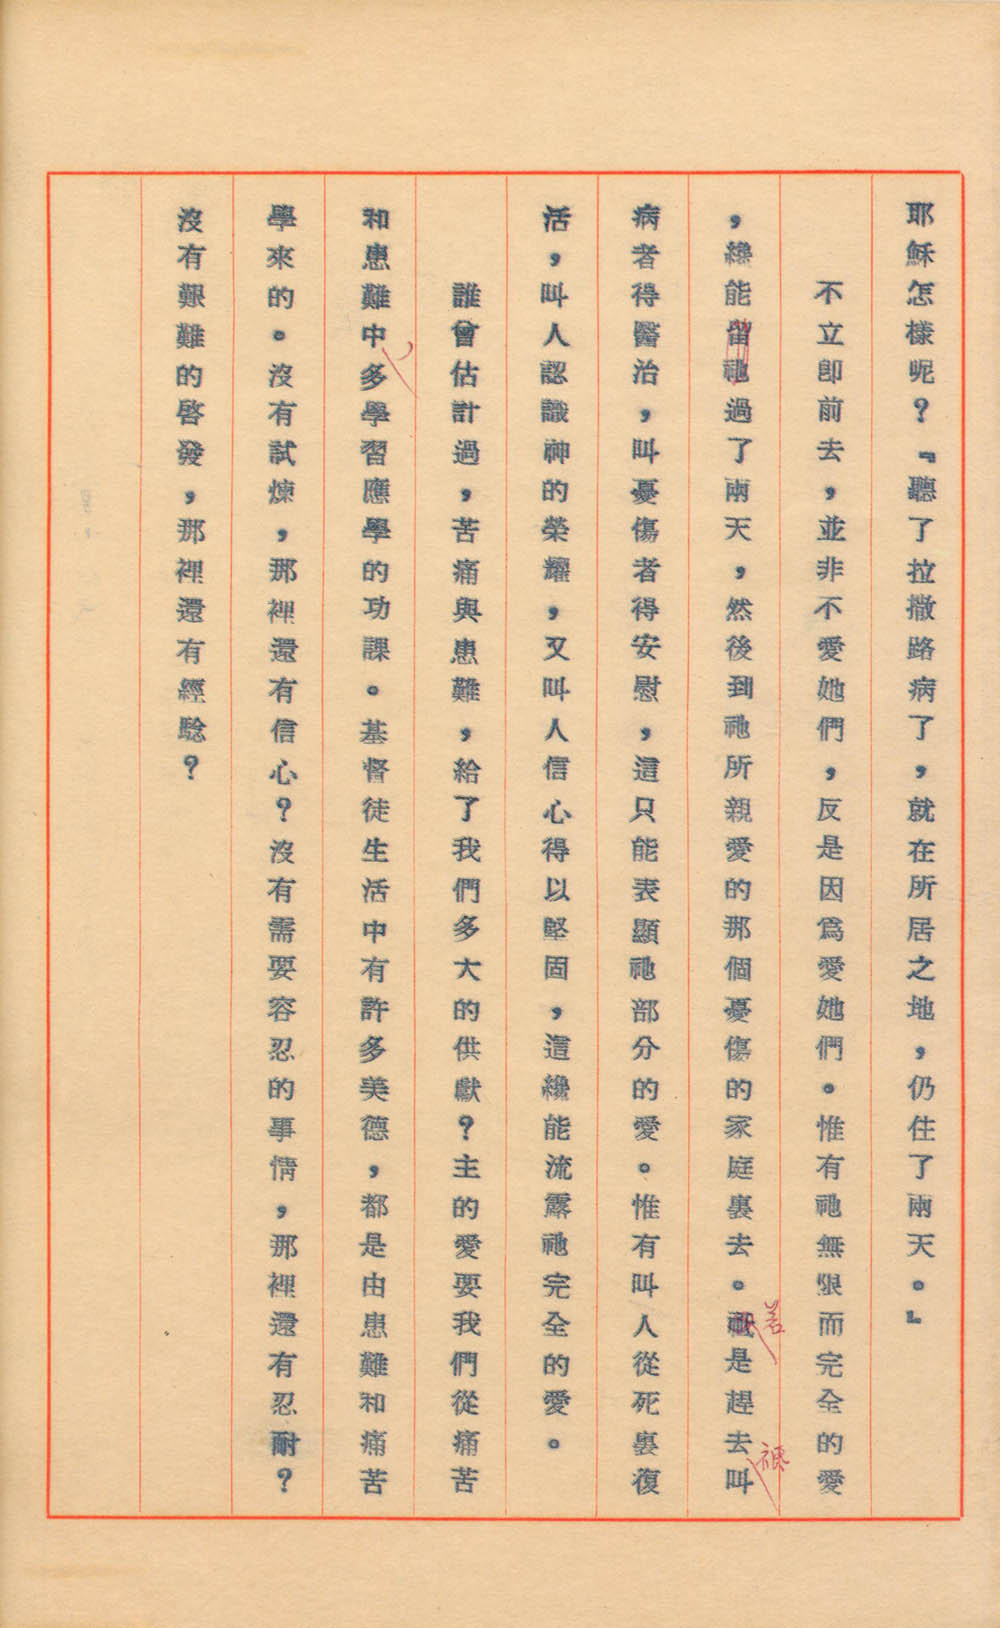 耶穌怎樣呢？『聽了拉撒路病了，就在所居之地，仍住了兩天。』
不立卽前去，並非不愛她們，反是因爲愛她們。惟有祂無限而完全的愛
，纔能留祂過了兩天，然後到祂所親愛的那個憂傷的家庭裏去。祇是趕去叫
若
禱
病者得醫治，叫憂傷者得安慰，這只能表顯祂部分的愛。惟有叫人從死裏復
活，叫人認識神的榮耀，又叫人信心得以堅固，這纔能流露祂完全的愛。
誰曾估計過，苦痛與患難，給了我們多大的供獻？主的愛要我們從痛苦
和患難中多學習應學的功課。基督徒生活中有許多美德，都是由患難和痛苦
學來的。沒有試煉，那裡還有信心？沒有需要容忍的事情，那裡還有忍耐？
沒有艱難的啓發，那裡還有經騐？